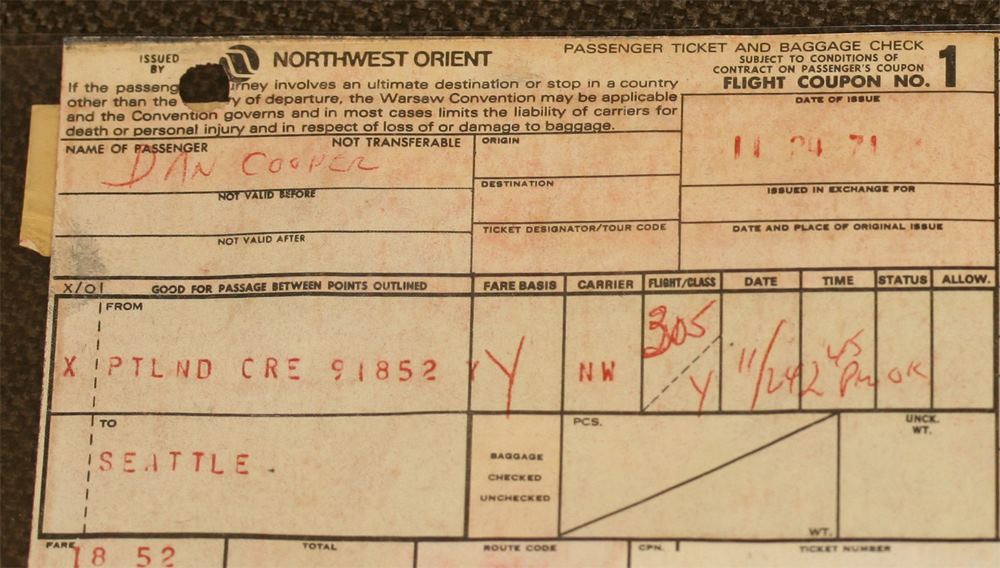 ISSUED BY NORTHWEST ORIENT
PASSENGER TICKET AND BAGGAGE CHECK
SUBJECT TO CONDITIONS OF
CONTRACT ON PASSENGER'S COUPON
FLIGHT COUPON NO. 1
If the passeng urney involves an ultimate destination or stop in a country
other than the ry of departure, the Warsaw Convention may be applicable
and the Convention governs and in most cases limits the liability of carriers for
death or personal injury and in respect of loss of or damage to baggage.
DATE OF ISSUE
11 24 71
NAME OF PASSENGER NOT TRANSFERABLE
DAN COOPER
ORIGIN
NOT VALID BEFORE
DESTINATION
ISSUED IN EXCHANGE FOR
NOT VALID AFTER
TICKET DESIGNATOR/TOUR CODE
DATE AND PLACE OF ORIGINAL ISSUE
X/O GOOD FOR PASSAGE BETWEEN POINTS OUTLINED FARE BASIS CARRIER FLIGHT/CLASS DATE TIME STATUS ALLOW.
FROM
X PTLND CRE 91852 Y Y NW 305 Y 11/24 2 45 PM OK
TO
SEATTLE.
BAGGAGE
CHECKED
UNCHECKED
PCS.
WT.
UNCK.
WT.
FARE TOTAL ROUTE CODE CPN. TICKET NUMBER
18 52